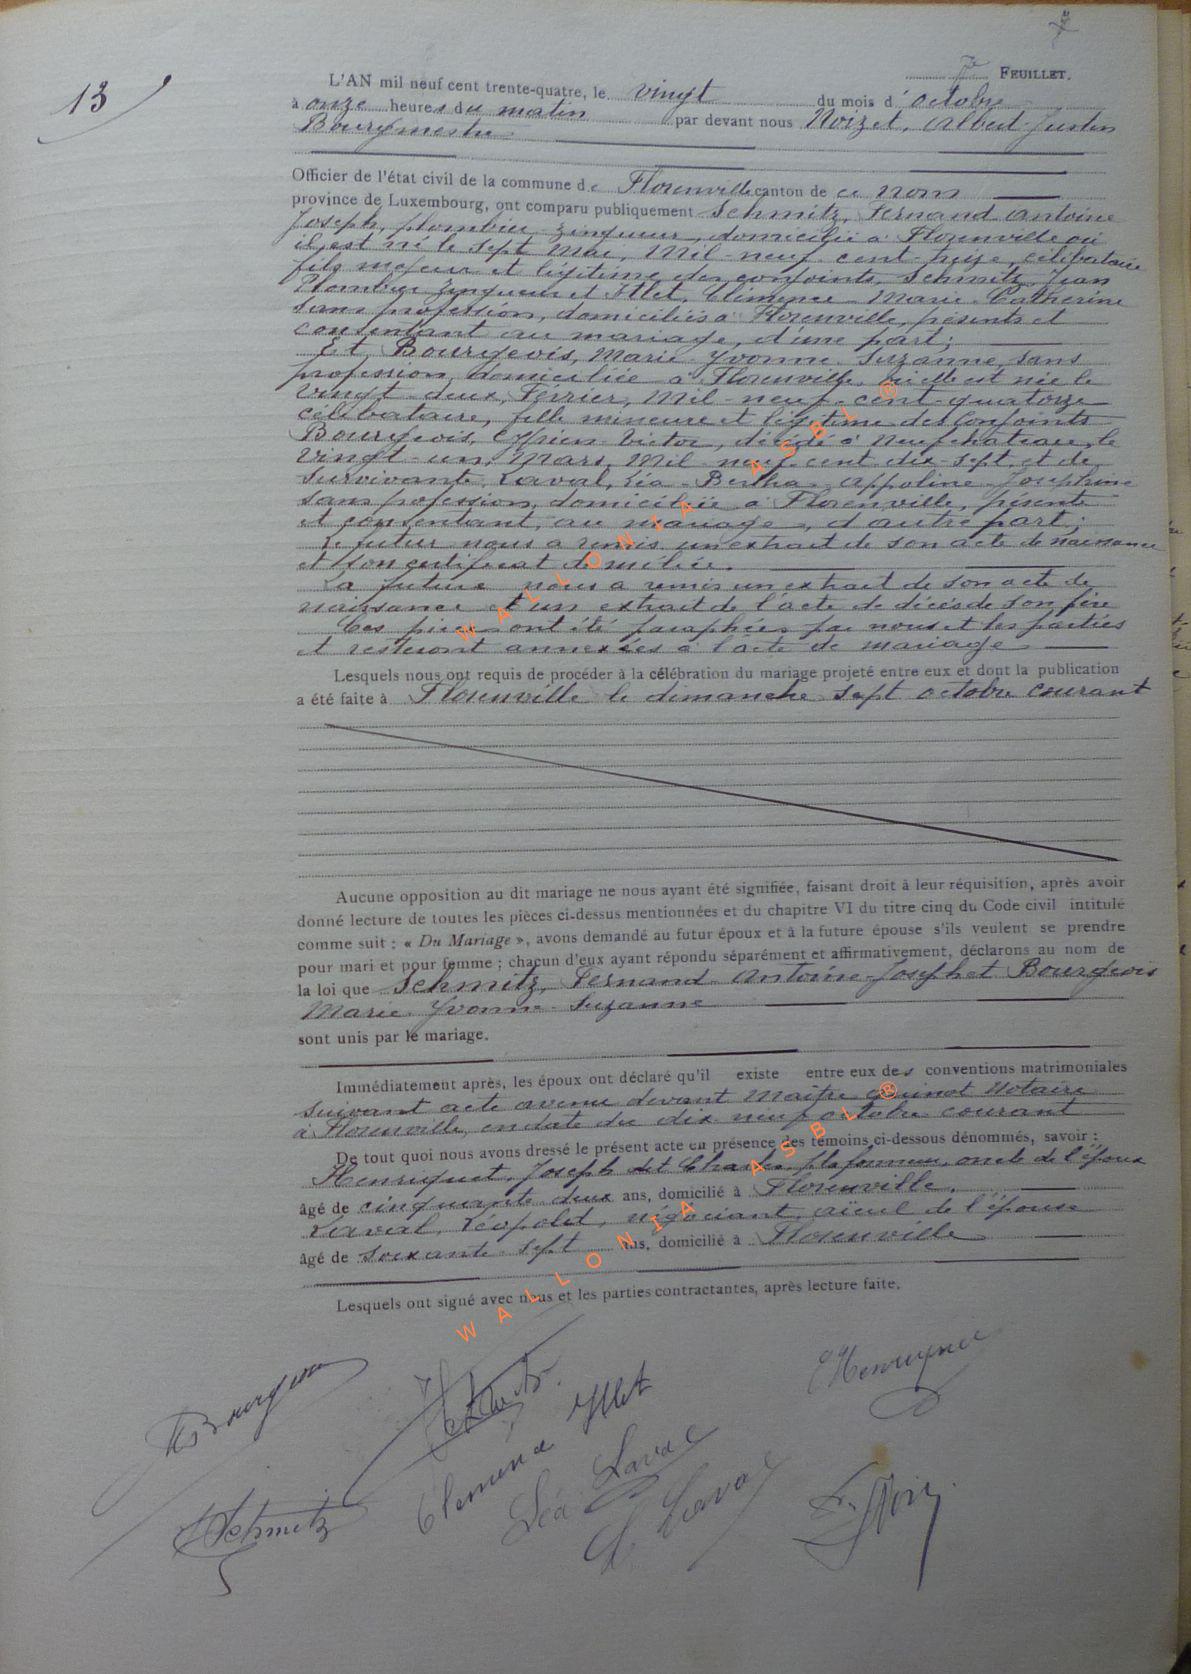 13
7e FEUILLET.
L'AN mil neuf cent trente-quatre, le vingt du mois d' octobre
à onze heures du matin par devant nous Noizet, Albert-Justin
Bourgmestre
Officier de l'état civil de la commune de Florenville canton de ce nom
province de Luxembourg, ont comparu publiquement Schmitz, Fernand Antoine
Joseph, plombier zingueur, domicilié à Florenville où
il est né le sept Mai, Mil-neuf-cent-treize, célibataire
fils majeur et légitime des conjoints, Schmitz, Jean
Plombier Zingueur et Ittlet, Clémence Marie Catherine
sans profession, domiciliés à Florenville, présents et
consentant au mariage, d'une part;
Et Bourgeois, Marie-Yvonne-Suzanne, sans
profession, domiciliée à Florenville, où elle est née le
vingt-deux, Février, Mil-neuf-cent-quatorze
célibataire, fille mineure et légitime des Conjoints
Bourgeois, Cyprien-Victor, décédé à Neufchateau, le
vingt-un, Mars, Mil neuf-cent-dix-sept et de
survivante, Laval, Léa-Bertha-Appoline-Joséphine
sans profession, domiciliée à Florenville, présente
et consentant, au mariage, d'autre part;
Le futur nous a remis un extrait de son acte de naissance
et son certificat de milice.
La future nous a remis un extrait de son acte de
naissance et un extrait de l'acte de décès de son père
Ces pièces ont été paraphées par nous et les parties
et resteront annexées à l'acte de mariage
Lesquels nous ont requis de procéder à la célébration du mariage projeté entre eux et dont la publication
a été faite à Florenville le dimanche sept octobre courant
Aucune opposition au dit mariage ne nous ayant été signifiée, faisant droit à leur réquisition, après avoir
donné lecture de toutes les pièces ci-dessus mentionnées et du chapitre VI du titre cinq du Code civil intitulé
comme suit : « Du Mariage », avons demandé au futur époux et à la future épouse s'ils veulent se prendre
pour mari et pour femme ; chacun d'eux ayant répondu séparément et affirmativement, déclarons au nom de
la loi que Schmitz, Fernand Antoine-Joseph et Bourgeois
Marie-Yvonne-Suzanne
sont unis par le mariage.
Immédiatement après, les époux ont déclaré qu'il existe entre eux des conventions matrimoniales
suivant acte avenu devant Maître Notaire
à Florenville, en date du dix-neuf octobre courant
De tout quoi nous avons dressé le présent acte en présence des témoins ci-dessous dénommés, savoir :
Henriquet, Joseph dit Charles plafonneur, oncle de l'époux
âgé de cinquante deux ans, domicilié à Florenville.
Laval, Léopold, négociant, aïeul de l'épouse
âgé de soixante-sept ans, domicilié à Florenville
Lesquels ont signé avec nous et les parties contractantes, après lecture faite.
Bourgeois
Schmitz
Clemence Ittlet
Léa Laval
L Laval
WALLONIA ASBL ®
WALLONIA ASBL ®